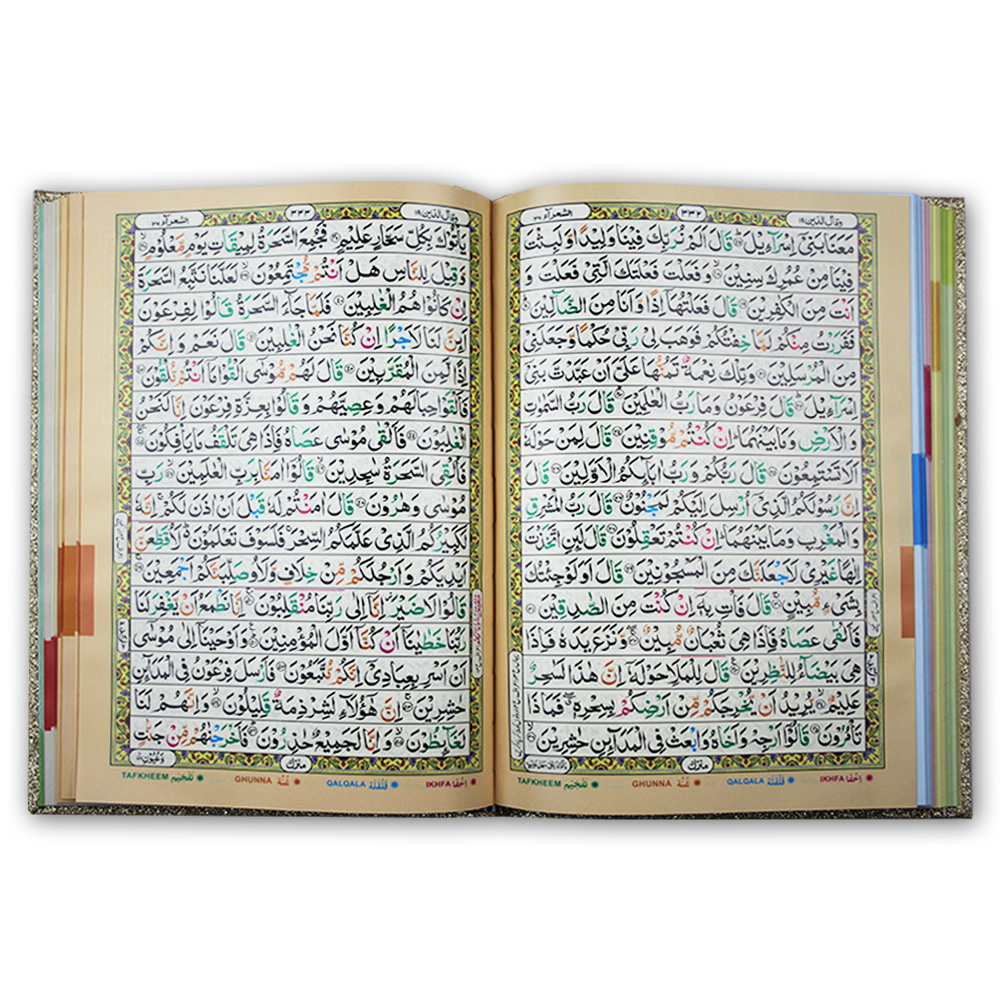 وقال الذین ۱۹
۳۳۲
الشعرآء ۲۶
مَعَنَا بَنِیْۤ اِسْرَآءِیْلَ ؕ قَالَ اَلَمْ نُرَبِّكَ فِیْنَا وَلِیْدًا وَّلَبِثْتَ
فِیْنَا مِنْ عُمُرِكَ سِنِیْنَ ۙ وَفَعَلْتَ فَعْلَتَكَ الَّتِیْ فَعَلْتَ وَ
اَنْتَ مِنَ الْكٰفِرِیْنَ قَالَ فَعَلْتُهَاۤ اِذًا وَّاَنَا مِنَ الضَّآلِّیْنَ
فَفَرَرْتُ مِنْكُمْ لَمَّا خِفْتُكُمْ فَوَهَبَ لِیْ رَبِّیْ حُكْمًا وَّجَعَلَنِیْ
مِنَ الْمُرْسَلِیْنَ وَتِلْكَ نِعْمَةٌ تَمُنُّهَا عَلَیَّ اَنْ عَبَّدْتَّ بَنِیْۤ
اِسْرَآءِیْلَ ؕ قَالَ فِرْعَوْنُ وَمَا رَبُّ الْعٰلَمِیْنَ ؕ قَالَ رَبُّ السَّمٰوٰتِ
وَالْاَرْضِ وَمَا بَیْنَهُمَا ؕ اِنْ كُنْتُمْ مُّوْقِنِیْنَ قَالَ لِمَنْ حَوْلَهٗۤ
اَلَا تَسْتَمِعُوْنَ قَالَ رَبُّكُمْ وَرَبُّ اٰبَآئِكُمُ الْاَوَّلِیْنَ قَالَ
اِنَّ رَسُوْلَكُمُ الَّذِیْۤ اُرْسِلَ اِلَیْكُمْ لَمَجْنُوْنٌ قَالَ رَبُّ الْمَشْرِقِ
وَالْمَغْرِبِ وَمَا بَیْنَهُمَا ؕ اِنْ كُنْتُمْ تَعْقِلُوْنَ قَالَ لَئِنِ اتَّخَذْتَ
اِلٰهًا غَیْرِیْ لَاَجْعَلَنَّكَ مِنَ الْمَسْجُوْنِیْنَ قَالَ اَوَلَوْ جِئْتُكَ
بِشَیْءٍ مُّبِیْنٍ ۚ قَالَ فَاْتِ بِهٖۤ اِنْ كُنْتَ مِنَ الصّٰدِقِیْنَ
فَاَلْقٰی عَصَاهُ فَاِذَا هِیَ ثُعْبَانٌ مُّبِیْنٌ ۖ وَّنَزَعَ یَدَهٗ فَاِذَا
هِیَ بَیْضَآءُ لِلنّٰظِرِیْنَ قَالَ لِلْمَلَاِ حَوْلَهٗۤ اِنَّ هٰذَا لَسٰحِرٌ
عَلِیْمٌ ۙ یُّرِیْدُ اَنْ یُّخْرِجَكُمْ مِّنْ اَرْضِكُمْ بِسِحْرِهٖ ۖ فَمَاذَا
تَاْمُرُوْنَ قَالُوْۤا اَرْجِهْ وَاَخَاهُ وَابْعَثْ فِی الْمَدَآئِنِ حٰشِرِیْنَ
منزل
IKHFA اِخْفَا
QALQALA قَلْقَلَة
GHUNNA غُنَّة
TAFKHEEM تفخیم
وقال الذین ۱۹
۳۳۳
الشعرآء ۲۶
یَاْتُوْكَ بِكُلِّ سَحَّارٍ عَلِیْمٍ فَجُمِعَ السَّحَرَةُ لِمِیْقَاتِ یَوْمٍ مَّعْلُوْمٍ
وَّقِیْلَ لِلنَّاسِ هَلْ اَنْتُمْ مُّجْتَمِعُوْنَ ۙ لَعَلَّنَا نَتَّبِعُ السَّحَرَةَ
اِنْ كَانُوْا هُمُ الْغٰلِبِیْنَ فَلَمَّا جَآءَ السَّحَرَةُ قَالُوْا لِفِرْعَوْنَ
اَئِنَّ لَنَا لَاَجْرًا اِنْ كُنَّا نَحْنُ الْغٰلِبِیْنَ قَالَ نَعَمْ وَاِنَّكُمْ
اِذًا لَّمِنَ الْمُقَرَّبِیْنَ قَالَ لَهُمْ مُّوْسٰۤی اَلْقُوْا مَاۤ اَنْتُمْ مُّلْقُوْنَ
فَاَلْقَوْا حِبَالَهُمْ وَعِصِیَّهُمْ وَقَالُوْا بِعِزَّةِ فِرْعَوْنَ اِنَّا لَنَحْنُ
الْغٰلِبُوْنَ فَاَلْقٰی مُوْسٰی عَصَاهُ فَاِذَا هِیَ تَلْقَفُ مَا یَاْفِكُوْنَ
فَاُلْقِیَ السَّحَرَةُ سٰجِدِیْنَ ۙ قَالُوْۤا اٰمَنَّا بِرَبِّ الْعٰلَمِیْنَ ۙ رَبِّ
مُوْسٰی وَهٰرُوْنَ قَالَ اٰمَنْتُمْ لَهٗ قَبْلَ اَنْ اٰذَنَ لَكُمْ ۚ اِنَّهٗ
لَكَبِیْرُكُمُ الَّذِیْ عَلَّمَكُمُ السِّحْرَ ۚ فَلَسَوْفَ تَعْلَمُوْنَ ؕ لَاُقَطِّعَنَّ
اَیْدِیَكُمْ وَاَرْجُلَكُمْ مِّنْ خِلَافٍ وَّلَاُوصَلِّبَنَّكُمْ اَجْمَعِیْنَ ۚ
قَالُوْا لَا ضَیْرَ ؗ اِنَّاۤ اِلٰی رَبِّنَا مُنْقَلِبُوْنَ ۚ اِنَّا نَطْمَعُ اَنْ یَّغْفِرَ لَنَا
رَبُّنَا خَطٰیٰنَاۤ اَنْ كُنَّاۤ اَوَّلَ الْمُؤْمِنِیْنَ ؕ وَاَوْحَیْنَاۤ اِلٰی مُوْسٰۤی
اَنْ اَسْرِ بِعِبَادِیْۤ اِنَّكُمْ مُّتَّبَعُوْنَ فَاَرْسَلَ فِرْعَوْنُ فِی الْمَدَآئِنِ
حٰشِرِیْنَ ۚ اِنَّ هٰۤؤُلَآءِ لَشِرْذِمَةٌ قَلِیْلُوْنَ ۙ وَاِنَّهُمْ لَنَا
لَغَآئِظُوْنَ ۙ وَاِنَّا لَجَمِیْعٌ حٰذِرُوْنَ ؕ فَاَخْرَجْنٰهُمْ مِّنْ جَنّٰتٍ
وَّعُیُوْنٍ
منزل
IKHFA اِخْفَا
QALQALA قَلْقَلَة
GHUNNA غُنَّة
TAFKHEEM تفخیم